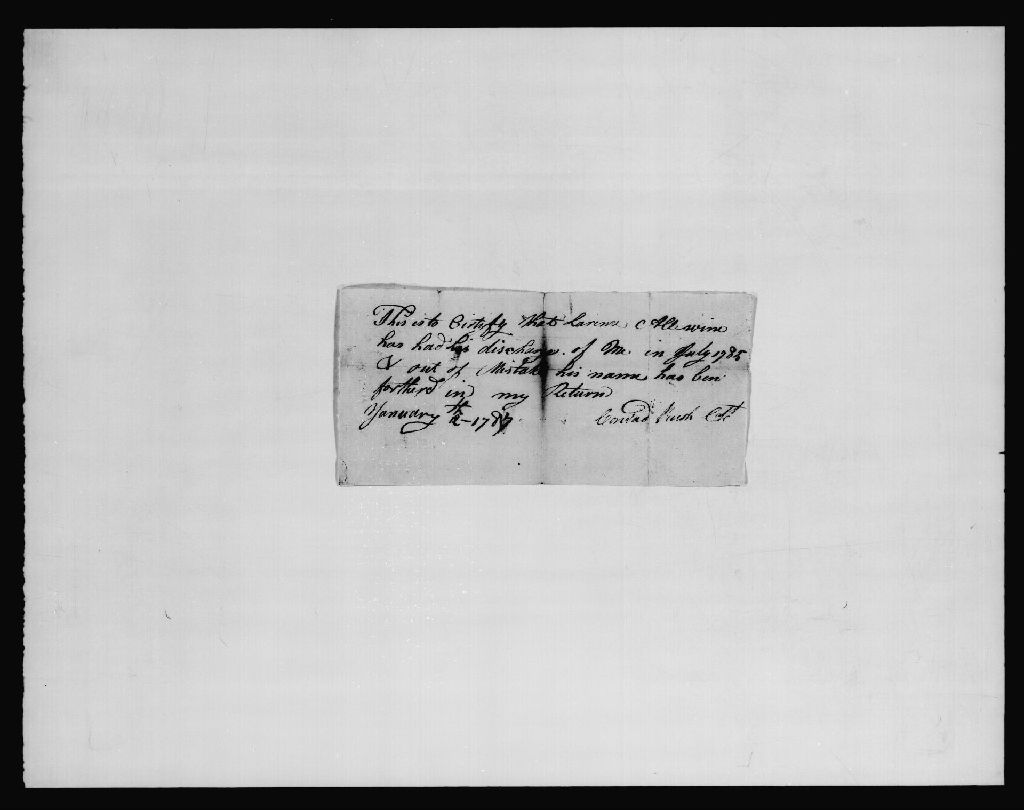 This is to Certefy that Carene Allewine
has had his discharge of Me. in July 1785
& out of Mistake his name has ben
forther'd in my Return
January th 2 - 1787
Conrad Rush Cpt